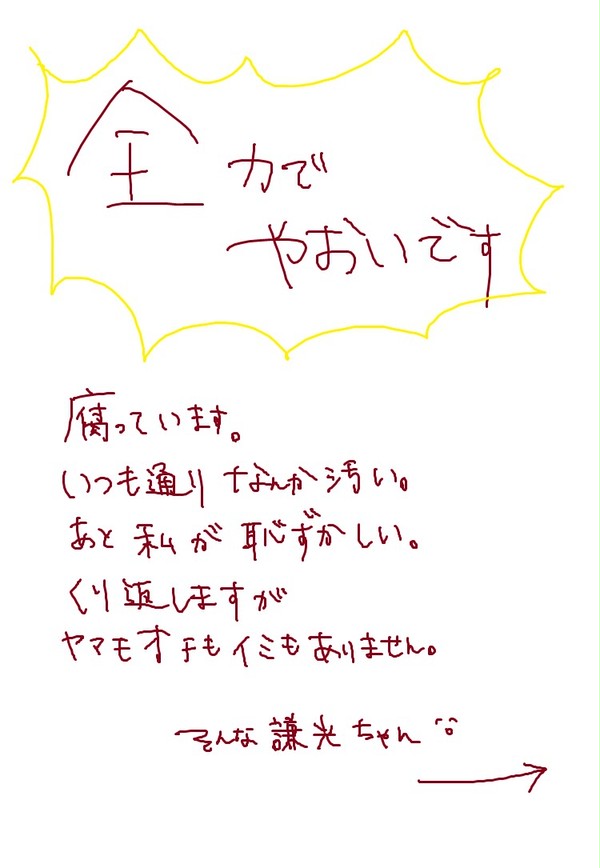 全力で
やおいです
腐っています。
いつも通りなんか汚い。
あと私が恥ずかしい。
くり返しますが
ヤマもオチもイミもありません。
そんな謙光ちゃん